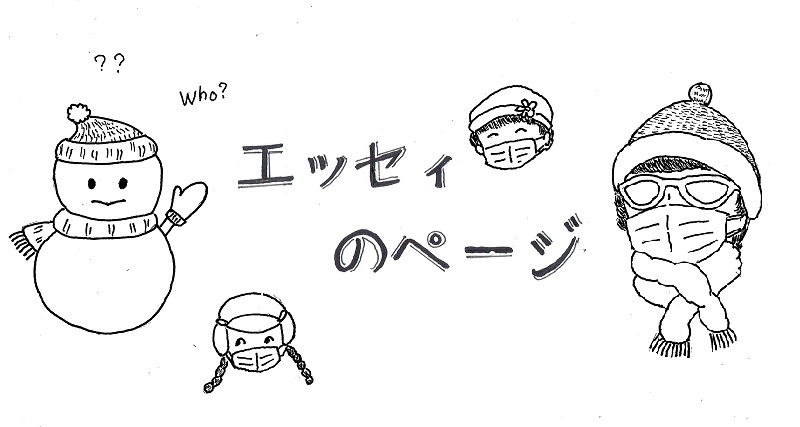 ??
Who?
エッセィ
のページ